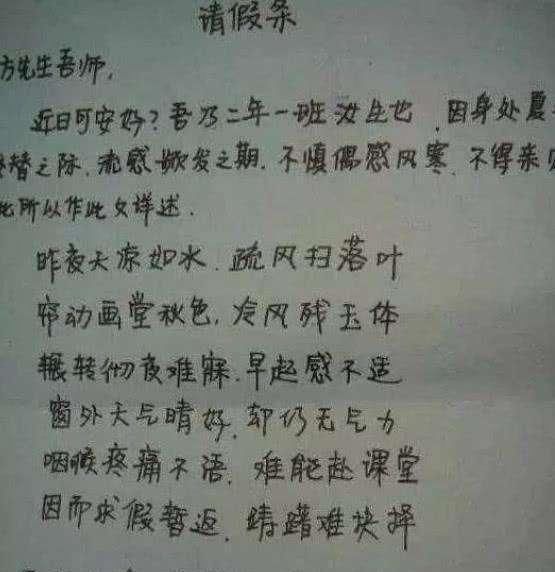 请假条
方先生吾师,
近日可安好?吾乃二年一班汝生也,因身处夏
替之际,流感欲发之期,不慎偶感风寒,不得亲
此所以作此文详述.
昨夜天凉如水,疏风扫落叶
帘动画堂秋色,冷风残玉体
辗转彻夜难寐,早起感不适
窗外天气晴好,却仍无气力
咽喉疼痛不语,难能赴课堂
因而求假暂返,踌躇难抉择